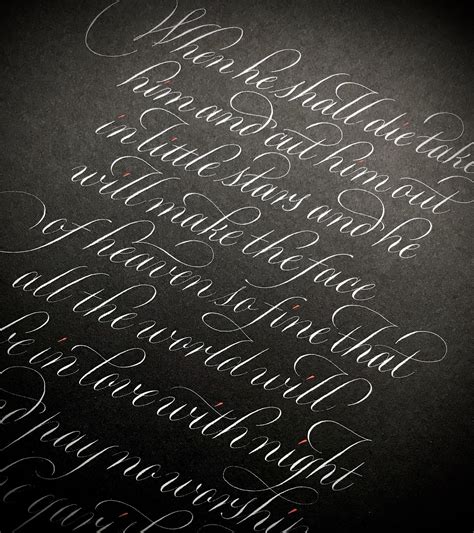 When he shall die take
him and cut him out
in little stars and he
will make the face
of heaven so fine that
all the world will
be in love with night
pay no worship